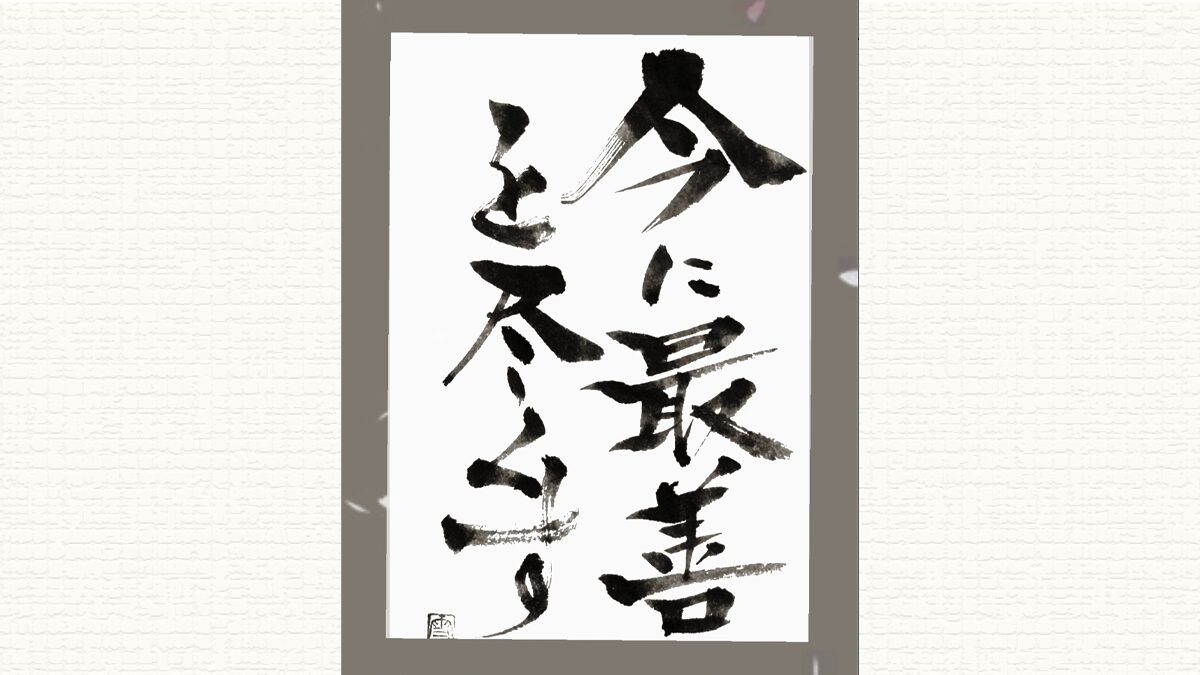 今に最善
を尽くす
雪